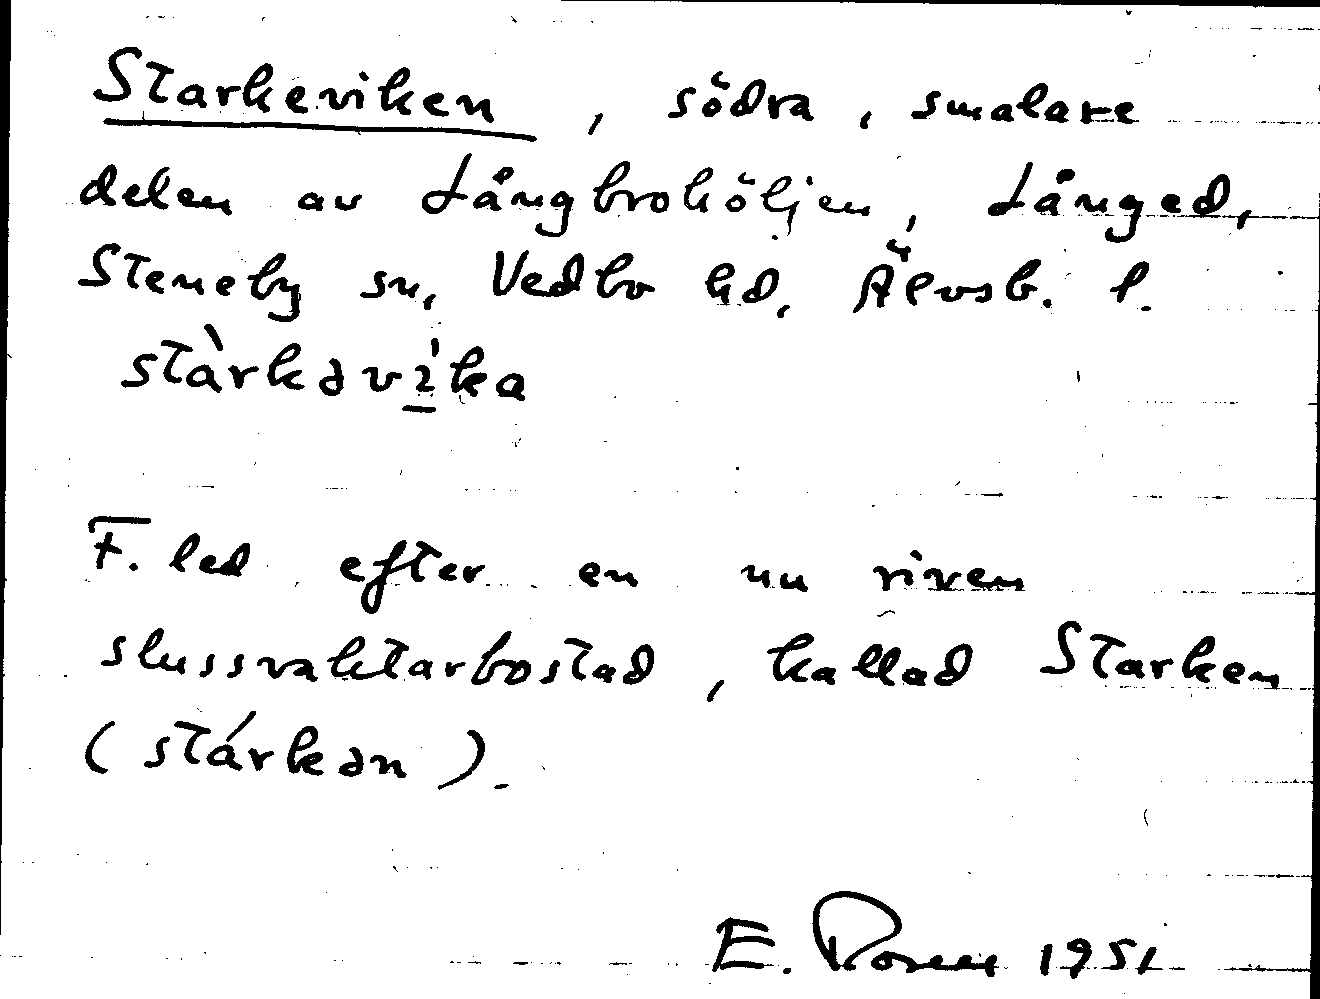 Starkeviken, södra, smalare
delen av Långbrohöljen, Långed,
Steneby sn, Vedbo hd, Älvsb. l.
stàrkəvi̱̍ka
F. led efter en nu riven
slussvaktarbostad, kallad Starken
(stárkən).
E. Rosell 1951